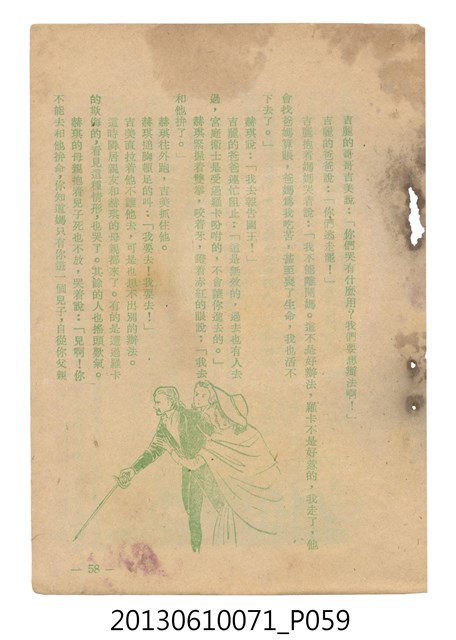 吉麗的哥哥吉美說：「你們哭有什麼用？我們要想辦法啊！」
吉麗的爸爸說：「你們逃走罷！」
吉麗拖着媽媽哭着說：「我不能離開媽。這不是好辦法，羅卡不是好惹的，我走了，他
會找爸媽算賬，爸媽爲我吃苦，甚至喪了生命，我也活不
下去了。」
赫琪說：「我去報告國王！」
吉麗的爸爸連忙阻止：「這是無效的，過去也有人去
過，宮庭衛士是受過羅卡吩咐的，不會讓你進去的。」
赫琪緊握着雙拳，咬着牙，瞪着赤紅的眼說：「我去
和他拚了。」
赫琪往外跑，吉美抓住他。
赫琪搥胸頓足的叫：「我要去！我要去！」
吉美直拉着他不讓他去，可是也想不出別的辦法。
這時隣居親友和赫琪的母親都來了。有的是遭過羅卡
的欺侮的，看見這種情形，也哭了。其餘的人也搖頭歎氣。
赫琪的母親抱着兒子死也不放，哭着說：「兒啊！你
不能去和他拚命，你知道媽只有你這一個兒子，自從你父親
— 58 —
20130610071_P059